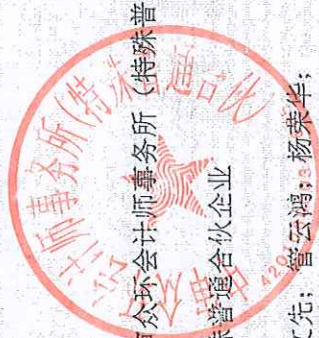 众环会计师事务所（特殊普
普通合伙企业
先；管云鸿；杨荣华；
师事务所（特殊普通合伙）